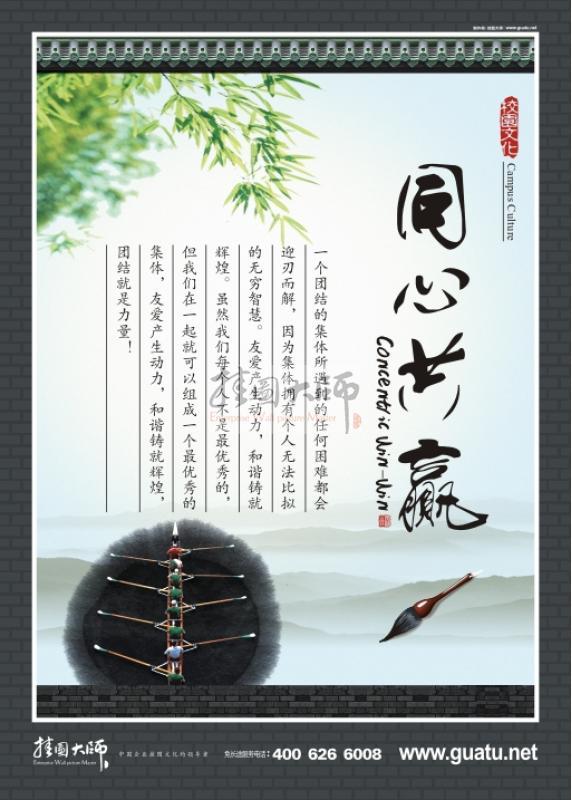 制作商:挂图大师 www.guatu.net
校园文化
Campus Culture
同心共赢
Concentric Win-Win
一个团结的集体所遇到的任何困难都会
迎刃而解，因为集体拥有个人无法比拟
的无穷智慧。友爱产生动力，和谐铸就
辉煌。虽然我们每个人不是最优秀的，
但我们在一起就可以组成一个最优秀的
集体，友爱产生动力，和谐铸就辉煌，
团结就是力量！
挂图大师
Enterprise Wall picture Master
挂图大师
Enterprise Wall picture Master
中国企业挂图文化的领导者
免长途服务电话：400 626 6008
www.guatu.net